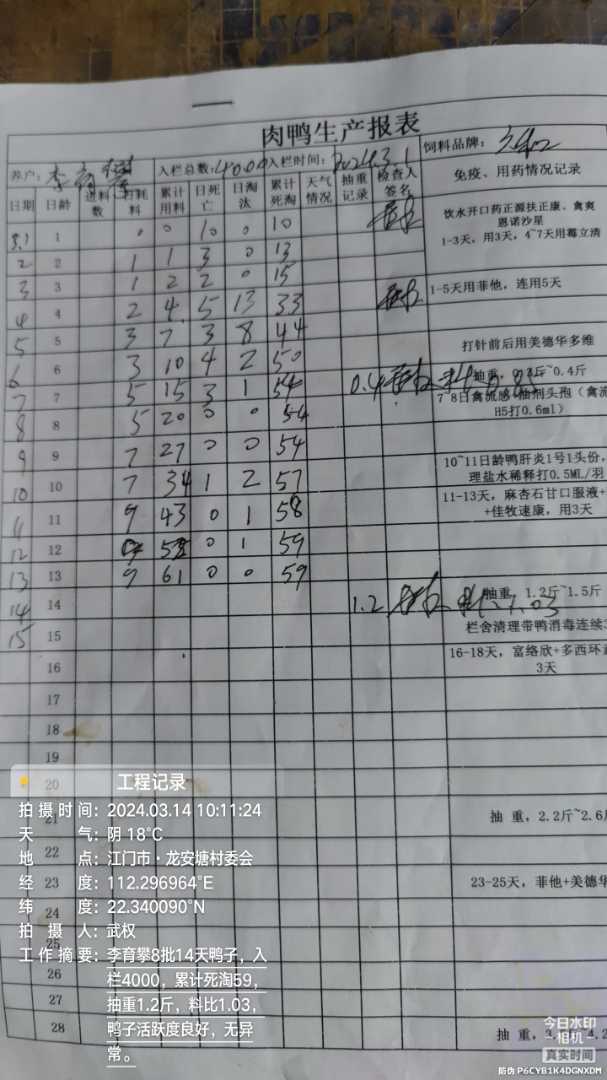 肉鸭生产报表
养户: 李育攀 入栏总数: 4000 入栏时间: 2024.3.1 饲料品牌:
日期 日龄 进料数 日耗料 累计用料 日死亡 日淘汰 累计死淘 天气情况 抽重记录 检查人签名 免疫、用药情况记录
3.1 1 0 0 10 0 10 饮水开口药正源扶正康、禽爽
恩诺沙星
1-3天，用3天，4~7天用霉立清
2 2 1 1 3 0 13
3 3 1 2 2 0 15 1-5天用菲他，连用5天
4 4 2 4 5 13 33
5 5 3 7 3 8 44 打针前后用美德华多维
6 6 3 10 4 2 50 抽重，0.3斤~0.4斤
7 7 5 15 3 1 54 0.4 0.85 7~8日禽流感
H5打0.6ml）
8 8 5 20 0 0 54
9 9 7 27 0 0 54 10~11日龄鸭肝炎1号1头份，
理盐水稀释打0.5ML/羽
10 10 7 34 1 2 57 11-13天，麻杏石甘口服液+
+佳牧速康，用3天
11 11 9 43 0 1 58
12 12 9 52 0 1 59
13 13 9 61 0 0 59
14 14 1.2 1.03 抽重，1.2斤~1.5斤
15 15 栏舍清理带鸭消毒连续
16 16-18天，富络欣+多西环
3天
17
18
19
20
21 抽 重，2.2斤~2.6
22
23 23-25天，菲他+美德华
24
25
26
27
28 抽 重，3. 4.2
工程记录
拍摄时间：2024.03.14 10:11:24
天 气：阴 18°C
地 点：江门市·龙安塘村委会
经 度：112.296964°E
纬 度：22.340090°N
拍 摄 人：武权
工作摘要：李育攀8批14天鸭子，入
栏4000，累计死淘59，
抽重1.2斤，料比1.03，
鸭子活跃度良好，无异
常。
今日水印
相机
真实时间
防伪 P6CYB1K4DGNXDM